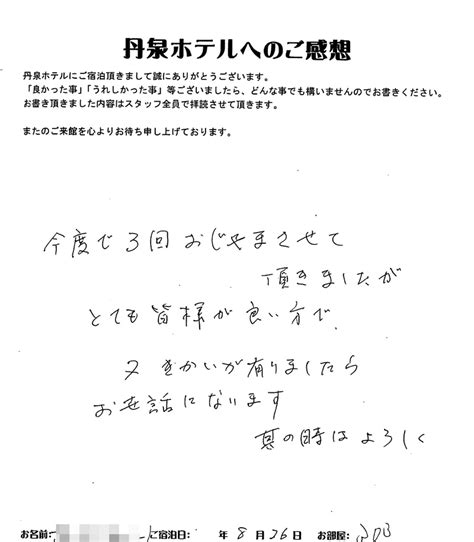 丹泉ホテルへのご感想
丹泉ホテルにご宿泊頂きまして誠にありがとうございます。
「良かった事」「うれしかった事」等ございましたら、どんな事でも構いませんのでお書きください。
お書き頂きました内容はスタッフ全員で拝読させて頂きます。
またのご来館を心よりお待ち申し上げております。
今度で3回おじゃまさせて
頂きましたが
とても皆様が良い方で、
又きかいが有りましたら
お世話になります
其の時はよろしく
お名前: ご宿泊日: 年 8月26日 お部屋: